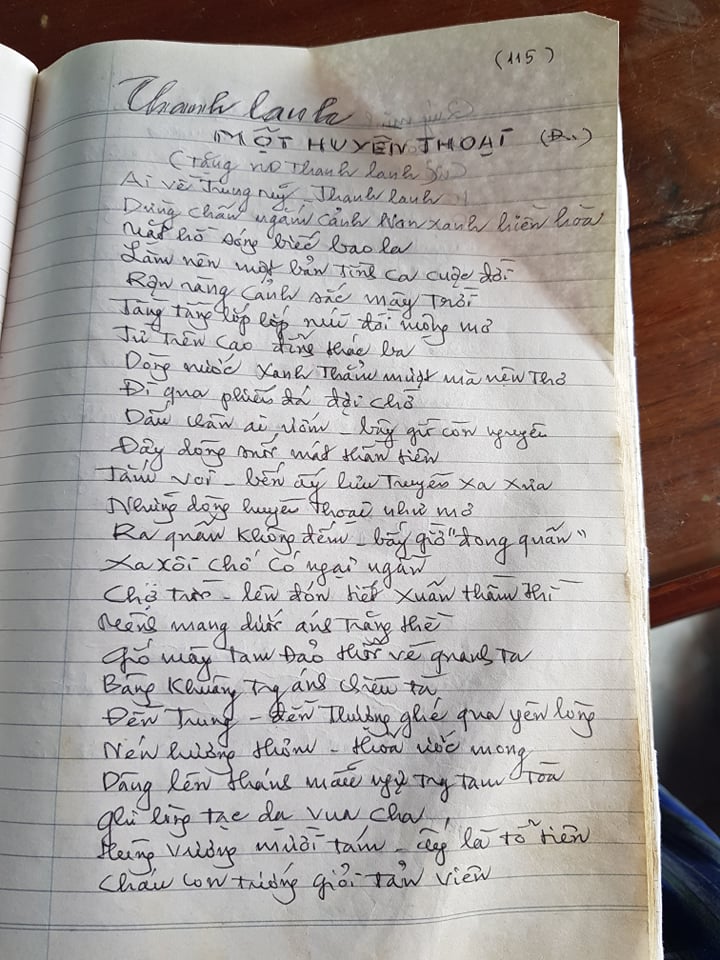 (115)
Thanh lanh
MỘT HUYỀN THOẠI (Đ..)
(Tặng nơ Thanh lanh
Ai về Trung mỹ Thanh lanh
Dừng chân ngắm cảnh Non xanh hiền hòa
Mặt hồ sóng biếc bao la
Làm nên một bản tình ca cuộc đời
Rộn ràng cảnh sắc mây Trời
Tầng tầng lớp lớp núi đồi mộng mơ
Từ Trên cao đỉnh thác ba
Dòng nước xanh Thẳm mượt mà nên Thơ
Đi qua phiến đá đợi chờ
Dấu chân ai ướm - bây giờ còn nguyên
Đây dòng suối mát thần tiên
Tắm voi - bến ấy lưu Truyền xa xưa
Những dòng huyền thoại như mơ
Ra quân không đếm - bây giờ "đong quân"
Xa xôi chớ có ngại ngần
Chợ trời - lên đón tiết xuân thầm thì
Mênh mang dưới ánh Trăng thề
Gió mây Tam Đảo thổi về quanh ta
Bâng khuâng Trg ánh chiều tà
Đền Trung - đền Thượng ghé qua yên lòng
Nén hương thơm - thỏa ước mong
Dâng lên thánh mẫu ngự trg tam Tòa
Ghi lòng tạc dạ vua cha
Hùng vương mười tám - ấy là tổ tiên
Cháu con trướng giỏi tản viên